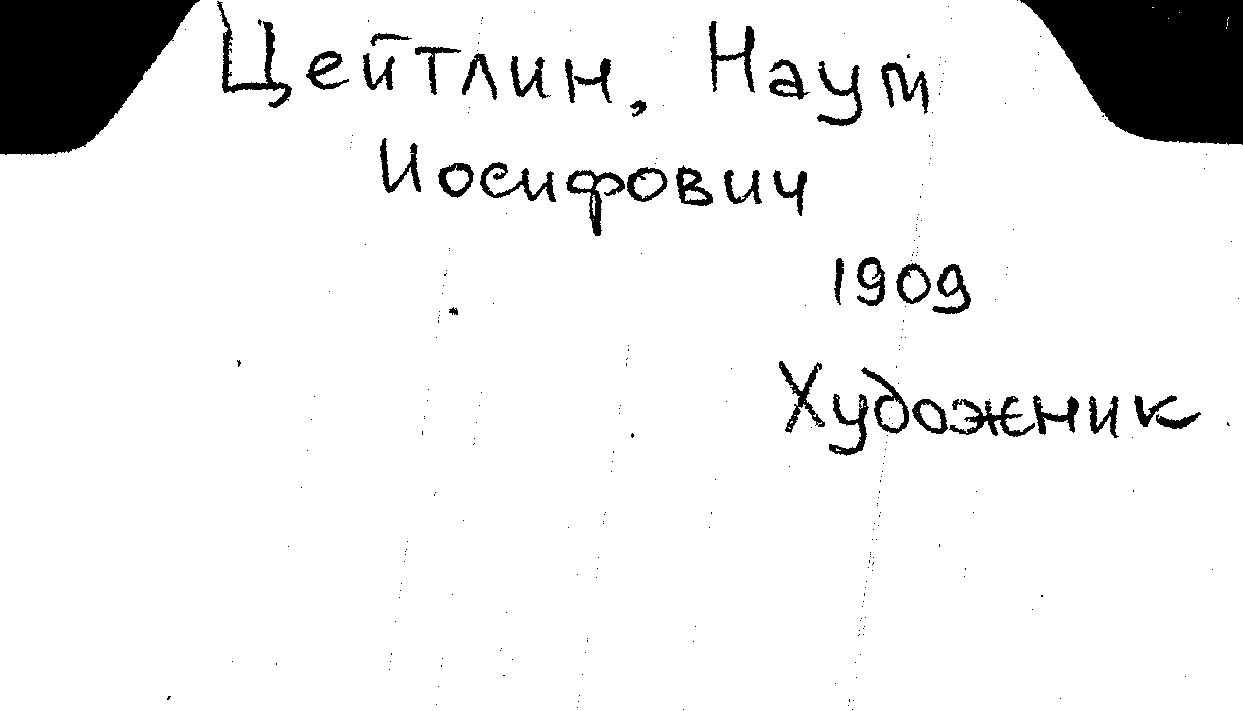 Цейтлин, Наум
Иосифович
1909
Художник